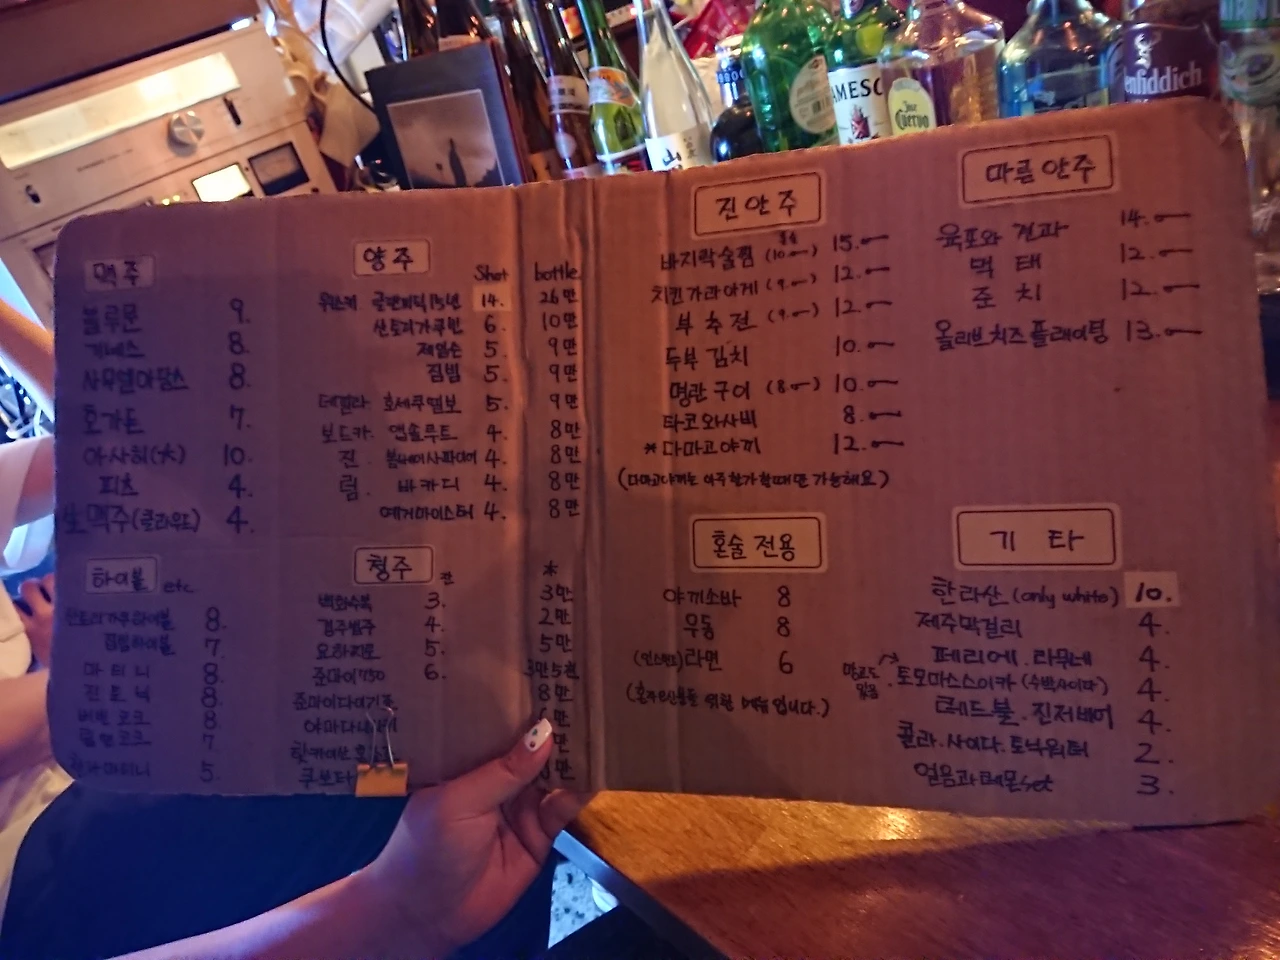 맥주
블루문 9.
기네스 8.
사무엘아담스 8.
호가든 7.
아사히(大) 10.
피츠 4.
生맥주(클라우드) 4.
하이볼 etc.
산토리가쿠하이볼 8.
짐빔하이볼 7.
마티니 8.
진토닉 8.
버번코크 8
럼앤코크 7
5.
양주 Shot bottle
위스키 글렌피딕15년 14. 26만
산토리가쿠빈 6. 10만
제임슨 5. 9만
짐빔 5. 9만
데낄라. 호세쿠엘보 5. 9만
보드카. 앱솔루트 4. 8만
진. 봄베이사파이어 4. 8만
럼. 바카디 4. 8만
예거마이스터 4. 8만
청주 잔 *
백화수복 3. 3만
경주법주 4. 2만
요하찌로 5. 5만
준마이750 6. 3만5천
준마이다이기죠 8만
만
만
쿠보타 만
진안주
바지락술찜 (10.-) 15.-
치킨가라아게 (9.-) 12.-
부추전 (9.-) 12.-
두부김치 10.-
명란구이 (8.-) 10.-
타코와사비 8.-
*다마고야끼 12.-
(다마고야끼는 아주한가할때만 가능해요)
혼술 전용
야끼소바 8
우동 8
(인스턴트)라면 6
(혼자오신분들 위한 메뉴입니다.)
마른안주
육포와 견과 14.-
먹태 12.-
준치 12.-
올리브치즈플레이팅 13.-
기타
한라산 (only white) 10.
제주막걸리 4.
페리에. 라무네 4.
토모마스스이카 (수박사이다) 4.
레드불. 진저비어 4.
콜라. 사이다. 토닉워터 2.
얼음과레몬set 3.
JAMESO
Jose
Cuervo
enfiddich